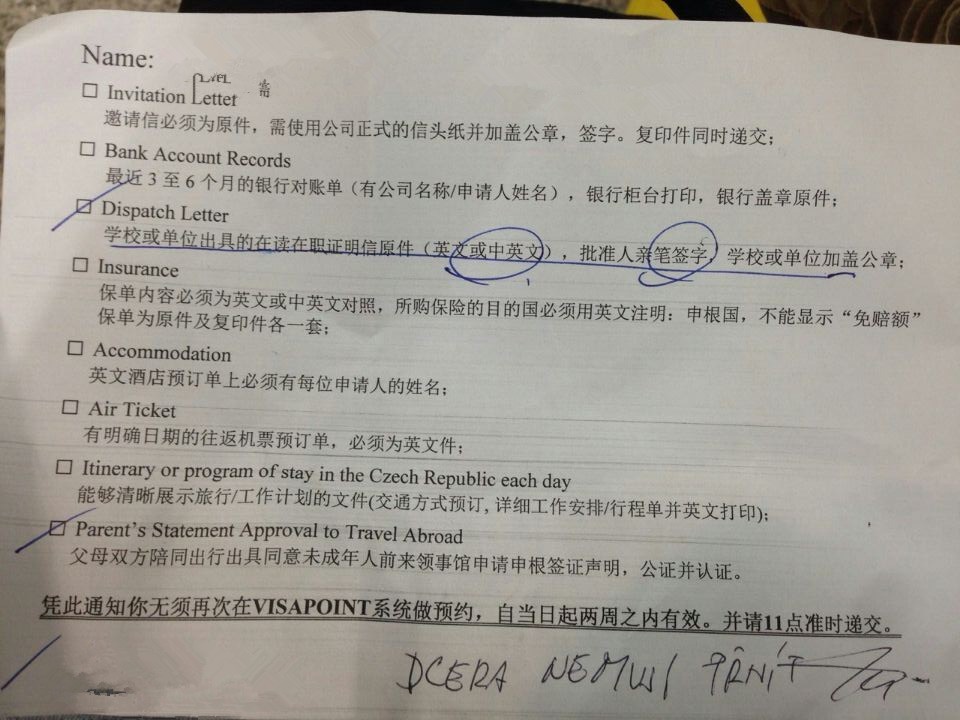 Name:
□ Invitation Letter
邀请信必须为原件，需使用公司正式的信头纸并加盖公章，签字。复印件同时递交；
□ Bank Account Records
最近 3 至 6 个月的银行对账单（有公司名称/申请人姓名），银行柜台打印，银行盖章原件；
□ Dispatch Letter
学校或单位出具的在读在职证明信原件（英文或中英文），批准人亲笔签字，学校或单位加盖公章；
□ Insurance
保单内容必须为英文或中英文对照，所购保险的目的国必须用英文注明：申根国，不能显示“免赔额”
保单为原件及复印件各一套；
□ Accommodation
英文酒店预订单上必须有每位申请人的姓名；
□ Air Ticket
有明确日期的往返机票预订单，必须为英文件；
□ Itinerary or program of stay in the Czech Republic each day
能够清晰展示旅行/工作计划的文件(交通方式预订, 详细工作安排/行程单并英文打印)；
□ Parent's Statement Approval to Travel Abroad
父母双方陪同出行出具同意未成年人前来领事馆申请申根签证声明，公证并认证。
凭此通知你无须再次在VISAPOINT系统做预约，自当日起两周之内有效。并请11点准时递交。
DCERA NEMUSÍ